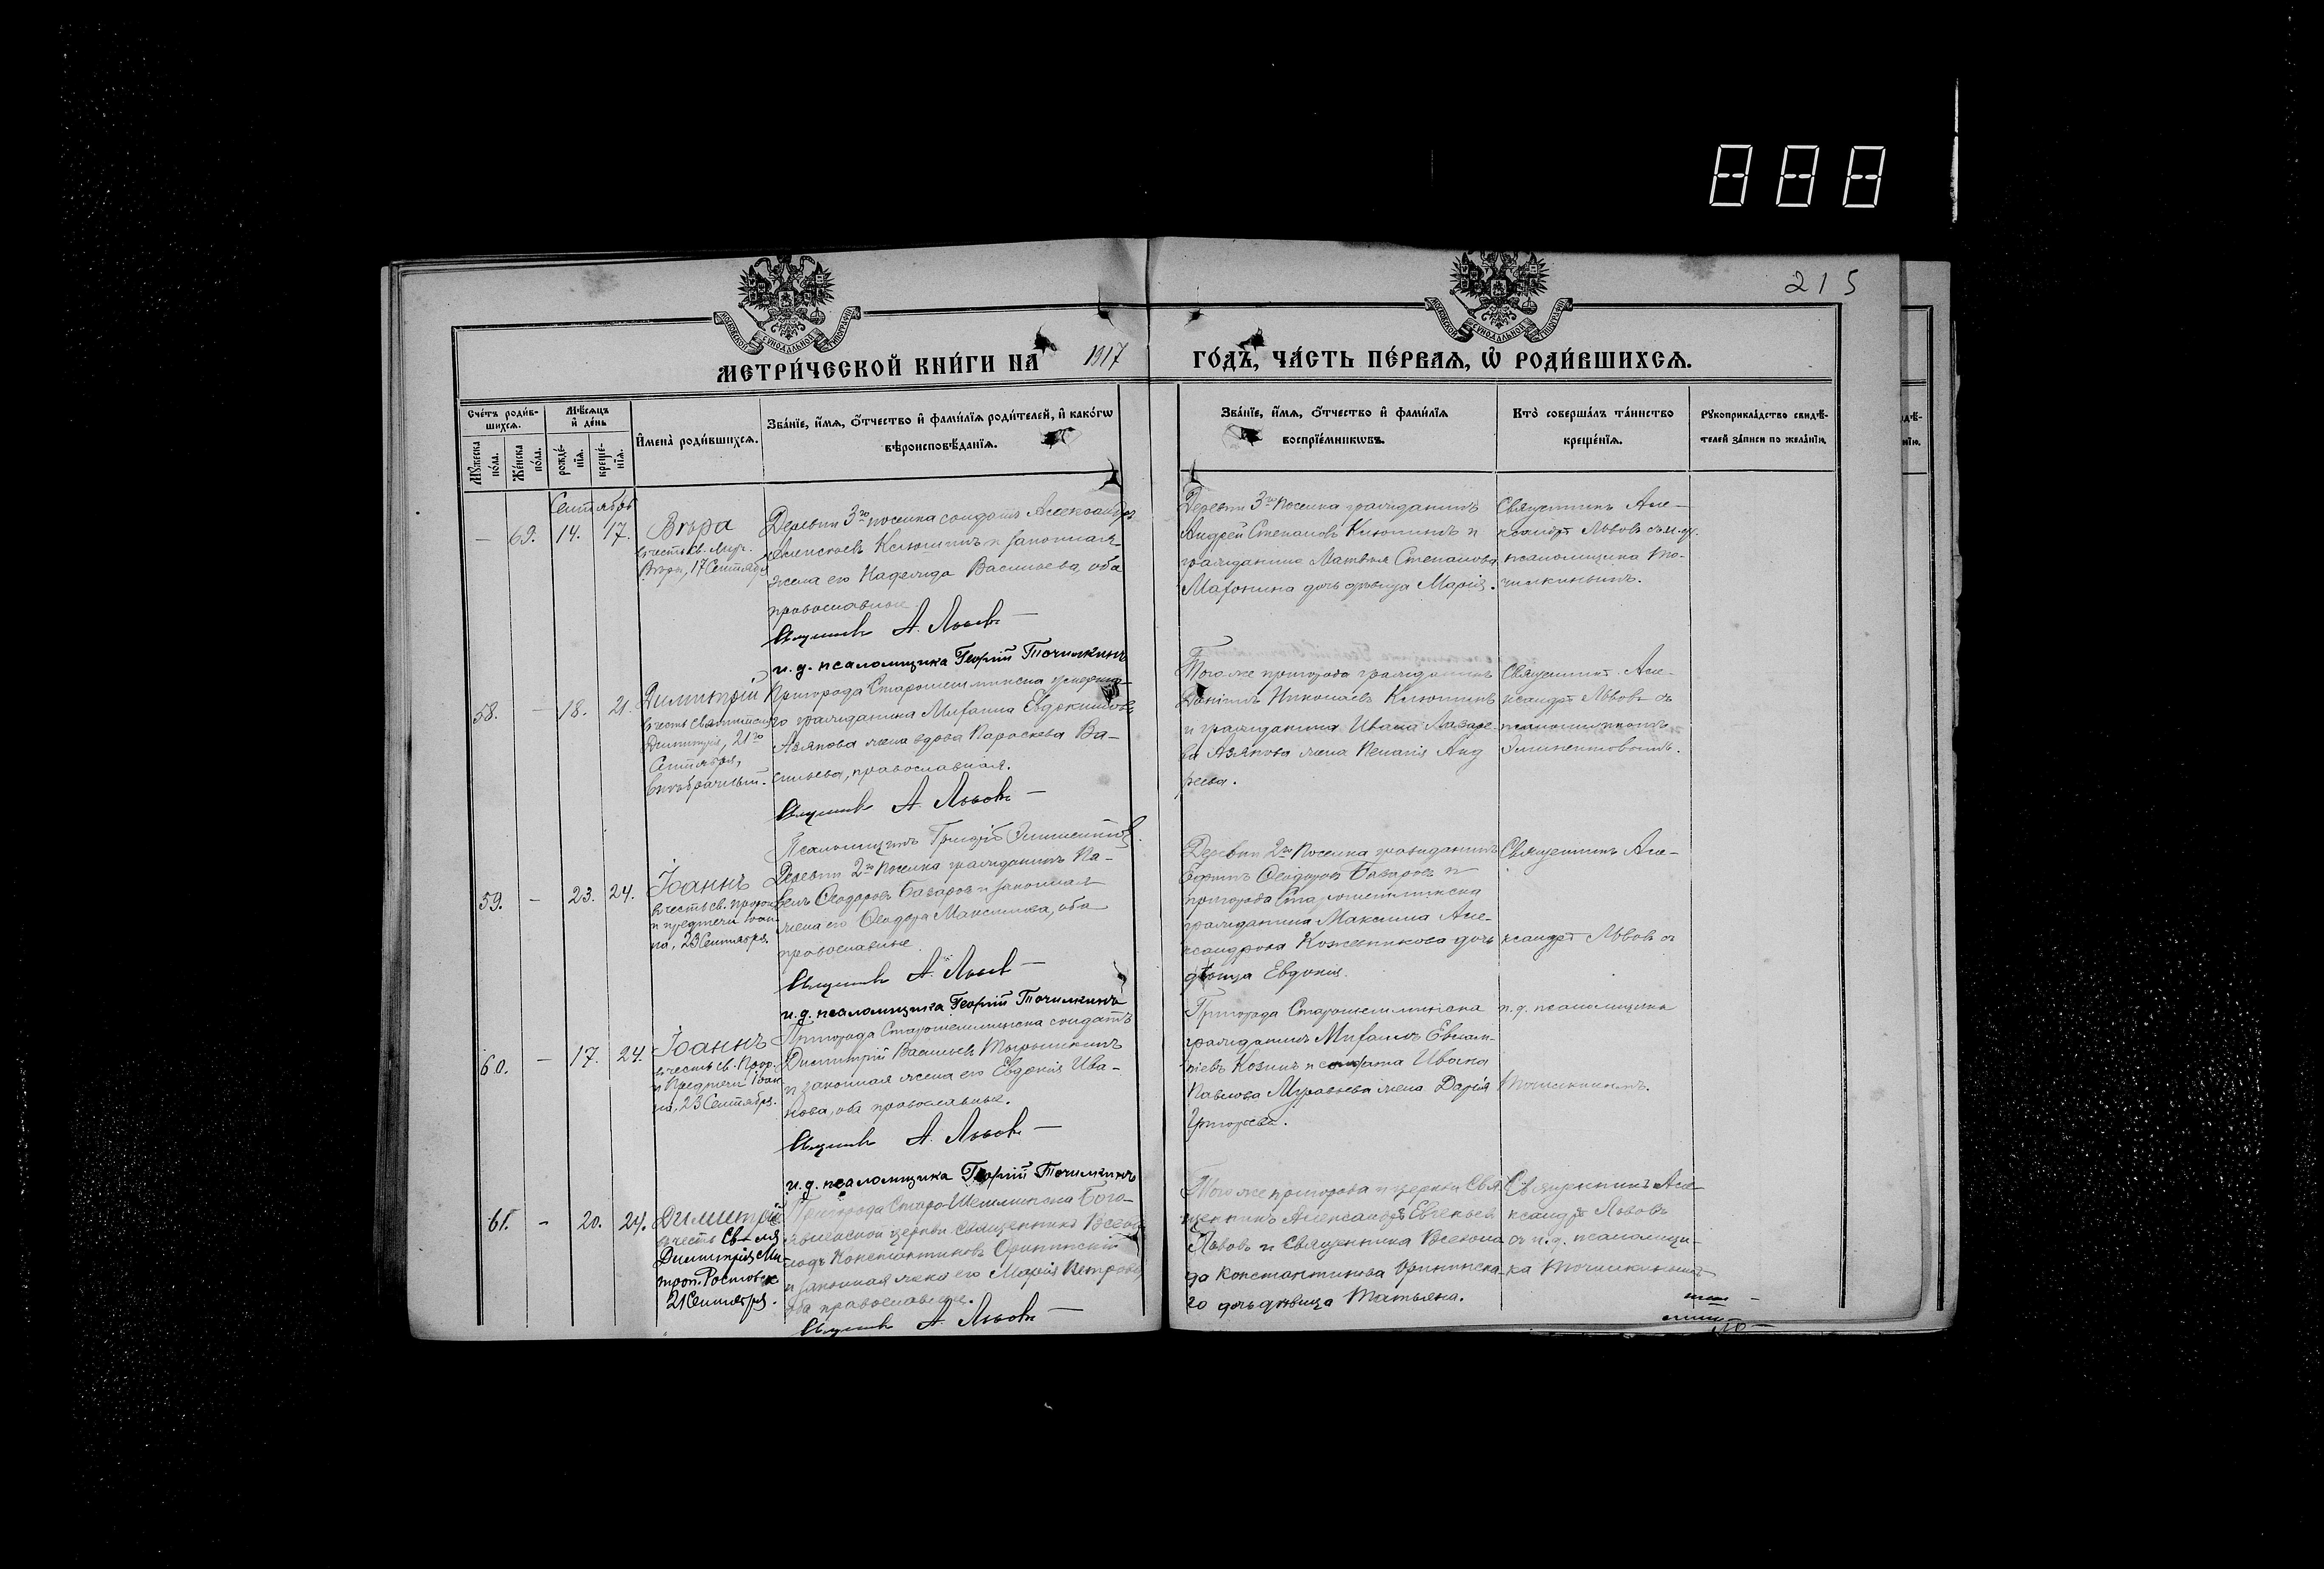 888
215
МОСКОВСКОЙ СѴНОДАЛЬНОЙ ТИПОГРАФІИ
МОСКОВСКОЙ СѴНОДАЛЬНОЙ ТИПОГРАФІИ
МЕТРИ́ЧЕСКОЙ КНИ́ГИ НА 1917 ГО́ДЪ, ЧА́СТЬ ПЕ́РВАѦ, Ѡ҆ РОДИ́ВШИХСѦ.
Сче́тъ роди́в-
шихсѧ.
Мѣ́сѧцъ
и҆ де́нь
И҆мена̀ роди́вшихсѧ.
Зва́нїе, и҆́мѧ, ѻ҆́тчество и҆ фами́лїѧ роди́телей, и҆ како́гѡ
вѣроисповѣ́данїѧ.
Мꙋ́жеска
по́ла.
Же́нска
по́ла.
рожде́-
нїѧ.
креще́-
нїѧ.
Зва́нїе, и҆́мѧ, ѻ҆́тчество и҆ фами́лїѧ
воспрїе́мникѡвъ.
Кто̀ соверша́лъ та́инство
креще́нїѧ.
Рꙋкоприкла́дство свидѣ́-
телей за́писи по жела́нїю.
Сентябрь
— 69. 14. 17. Вѣра
въ честь св. муч.
Вѣры, 17 Сентября
Деревни 3го поселка солдатъ Александръ
Алексѣевъ Клюшинъ и законная
жена его Надежда Васильева, оба
православные.
Священникъ А. Львовъ —
и. д. псаломщика Георгій Точилкинъ
Деревни 3го поселка гражданинъ
Андрей Степановъ Клюшинъ и
гражданина Матвѣя Степанова
дочь дѣвица Марія.
Священникъ Але-
ксандръ Львовъ съ и. д.
псаломщика То-
чилкинымъ.
58. — 18. 21. Димитрій
въ честь Святителя
Димитрія, 21го
Сентября,
внѣбрачный.
Пригорода Старошешминска умерша-
го гражданина Михаила Евдокимова
Азякова жена вдова Параскева Ва-
сильева, православная.
Священникъ А. Львовъ —
Псаломщикъ
Того же пригорода гражданинъ
Даніилъ Николаевъ Клюшинъ
и гражданина Ивана Лазаре-
ва Азякова жена Пелагія Анд
реева.
Священникъ Але-
ксандръ Львовъ съ
псаломщикомъ
59. — 23. 24. Іоаннъ
въ честь св. пророка
и предтечи Іоан-
на, 23 Сентября.
Деревни 2го поселка гражданинъ Па-
велъ Ѳеодоровъ Базаровъ и законная
жена его Ѳеодора Максимова, оба
православные.
Священникъ А. Львовъ —
и. д. псаломщика Георгій Точилкинъ
Деревни 2го поселка гражданинъ
Ефимъ Ѳеодоровъ Базаровъ и
пригорода Старошешминска
гражданина Максима Але-
ксандрова Кожевникова дочь
дѣвица Евдокія.
Священникъ Але-
ксандръ Львовъ съ
60. — 17. 24. Іоаннъ
въ честь св. Прор.
и Предтечи Іоан
на, 23 Сентября.
Пригорода Старошешминска солдатъ
Димитрій Васильевъ
и законная жена его Евдокія Ива-
нова, оба православные.
Священникъ А. Львовъ —
и. д. псаломщика Георгій Точилкинъ
Пригорода Старошешминска
гражданинъ Михаилъ Евлам-
піевъ Козинъ и солдата Ивана
Павлова Муравьева жена Дарія
Григорьева.
и. д. псаломщика
Точилкинымъ.
61. — 20. 24. Димитрій
въ честь Св-ля
Димитрія Ми-
троп. Ростовск
21 Сентября.
Пригорода Старо-Шешминска Бого-
явленской церкви священникъ Всево-
лодъ Константиновъ
и законная жена его Марія Петрова,
оба православные.
Священникъ А. Львовъ —
Того же пригорода и церкви Свя
щенникъ Александръ Евгеньевъ
Львовъ и Священника Всеволо
да Константинова
го дочь дѣвица Татьяна.
Священникъ Але-
ксандръ Львовъ
съ и. д. псаломщи-
ка Точилкинымъ